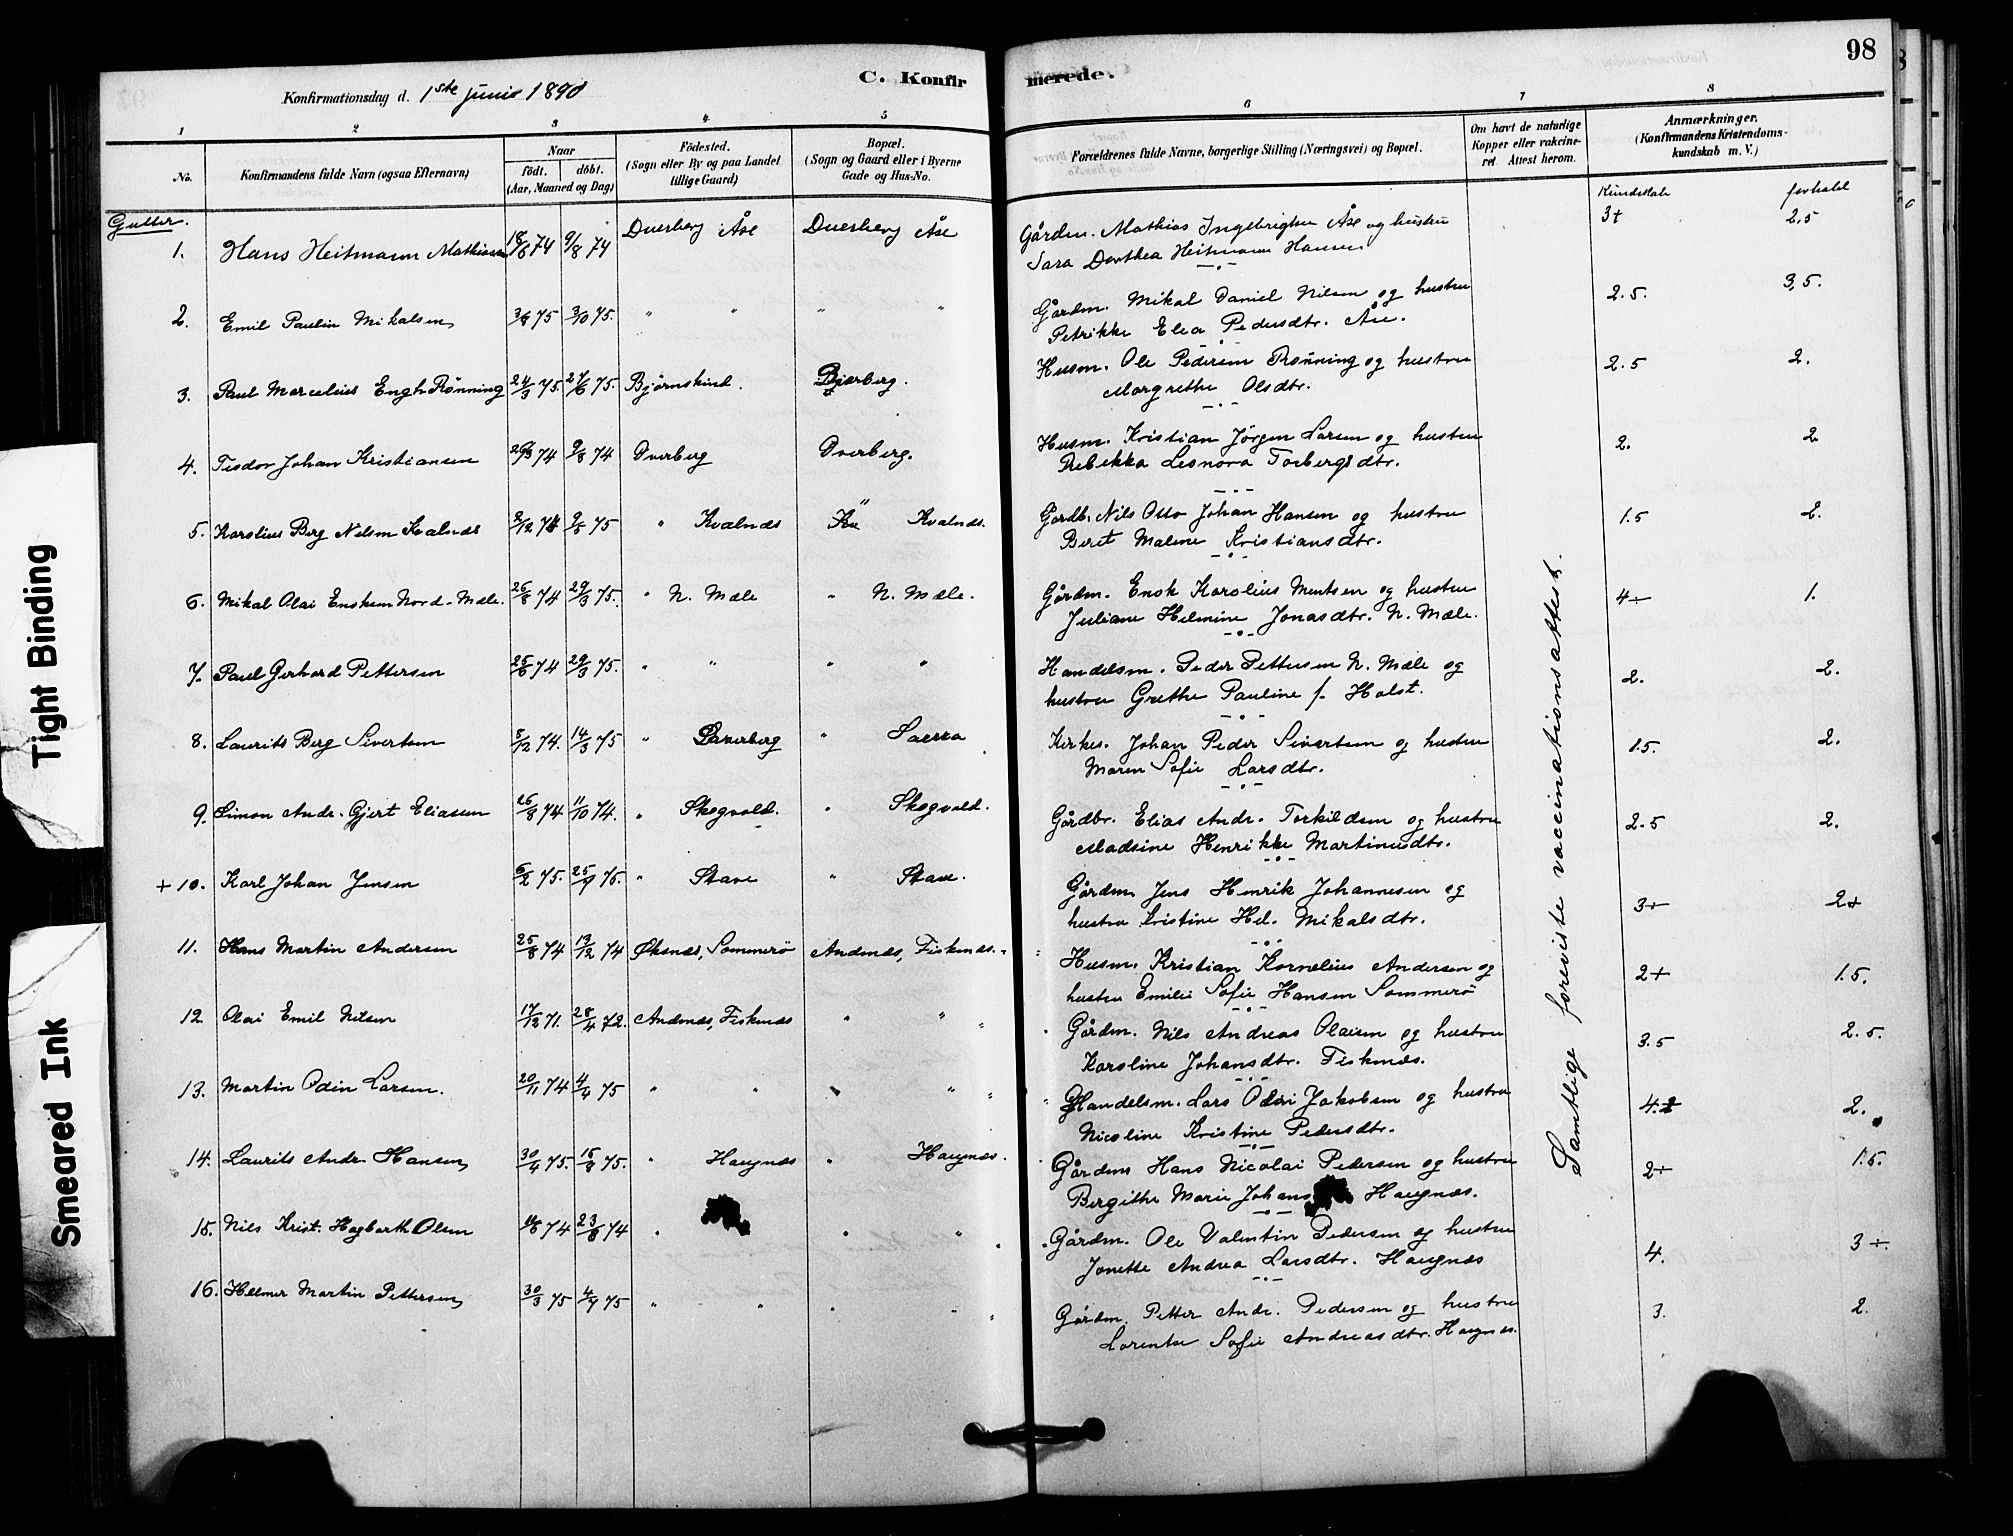 98
C. Konfirmerede.
Konfirmationsdag d. 1ste juni 1890
1 2 3 4 5 6 7 8
No. Konfirmandens fulde Navn (ogsaa Efternavn) Naar födt. döbt. (Aar, Maaned og Dag) Födested. (Sogn eller By og paa Landet tillige Gaard) Bopæl. (Sogn og Gaard eller i Byerne Gade og Hus-No.
Forældrenes fulde Navne, borgerlige Stilling (Næringsvei) og Bopæl. Om havt de naturlige Kopper eller vakcineret. Attest herom. Anmærkninger. (Konfirmandens Kristendomskundskab m. V.)
Kundskab forhold
Gutter.
1. Hans Heitmann Mathiassen 18/6 74 9/8 74 Dverberg Åse Dverberg Åse Gårdm. Mathias Ingebrigtsen Åse og hustru 3+ 2,5
Sara Dorthea Heitmann Hansen
2. Emil Paulin Mikalsen 3/8 75 3/10 75. " " " " Gårdm. Mikal Daniel Nilsen og hustru 2.5. 3,5.
Petrikke Elea Pedersdtr. Åse.
3. Paul Marcelius Engh Rønning 24/3 75. 27/6 75. Bjørnskind. Bjerberg. Husm. Ole Pedersen Rønning og hustru 2.5 2.
Margrethe Olsdtr.
4. Tesdor Johan Kristiansen 29/3 74 9/8 74 Dverberg Dverberg. Husm. Kristian Jörgen Larsen og hustru 2. 2.
Rebekka Leonora Torbergsdtr.
5. Karolius Berg Nilsen Kvalnæs 2/12 74 9/5 75 " Kvalnæs " Kvalnæs. Gårdb. Nils Otto Johan Hansen og hustru 1.5 2.
Beret Malene Kristiansdtr.
6. Mikal Olai Enoksen Nord-Mæle. 26/8 74 29/3 75. " N. Mæle " N. Mæle. Gårdm. Enok Karolius Mentsen og hustru 4÷ 1.
Juliane Helmine Jonasdtr. N. Mæle.
7. Paul Gerhard Pettersen 25/6 74 29/3 75. " " " " Handelsm. Peder Pettersen N. Mæle og 2. 2.
hustru Grethe Pauline f. Holst.
8. Laurits Berg Sivertsen 8/12 74. 14/3 75 " Dverberg " Saura Kirkes. Johan Peder Sivertsen og hustru 1.5. 2.
Maren Sofie Larsdtr.
9. Simon Andr. Gjert Eliassen 26/8 74 11/10 74. " Skogvold. " Skogvold. Gårdbr. Elias Andr. Torkildsen og hustru 2.5 2.
Madsine Henrikke Martinusdtr.
+ 10. Karl Johan Jensen 6/2 75. 25/9 75. " Stave " Stave. Gårdm. Jens Henrik Johannesen og 3÷ 2+
hustru Kristine Hel. Mikalsdtr.
11. Hans Martin Andersen 25/8 74 13/12 74 Øksnæs, Sommerö Andenæs, Fiskenæs. Husm. Kristian Kornelius Andersen og 2+ 1.5.
hustru Emilie Sofie Hansen Sommerö
12. Olai Emil Nilsen 17/12 71. 28/4 72. Andenæs, Fiskenæs " " " Gårdm. Nils Andreas Olaisen og hustru 3.5 2.5.
Karoline Johansdtr. Fiskenæs.
13. Martin Odin Larsen. 20/11 74 4/4 75 " " " " Handelsm. Lars Olai Jakobsen og hustru 4. 2.
Nicoline Kristine Pedersdtr.
14. Laurits Andr. Hansen 30/4 75. 15/8 75. " Haugnæs " Haugnæs. Gårdm Hans Nicolai Pedersen og hustru 2÷ 1.5.
Bergithe Marie Johans Haugnæs.
15. Nils Krist. Hagbarth Olsen 74 23/8 74 " " " Gårdm. Ole Valentin Pedersen og hustru 4. 3÷.
Jonette Andrea Larsdtr. Haugnæs
16. Helmer Martin Pettersen 30/3 75 4/4 75 " " " " Gårdm. Petter Andr. Pedersen og hustru 3. 2.
Lorentse Sofie Andreasdtr. Haugnæs.
Samtlige foreviste vaccinationsattest.
Tight Binding
Smeared Ink